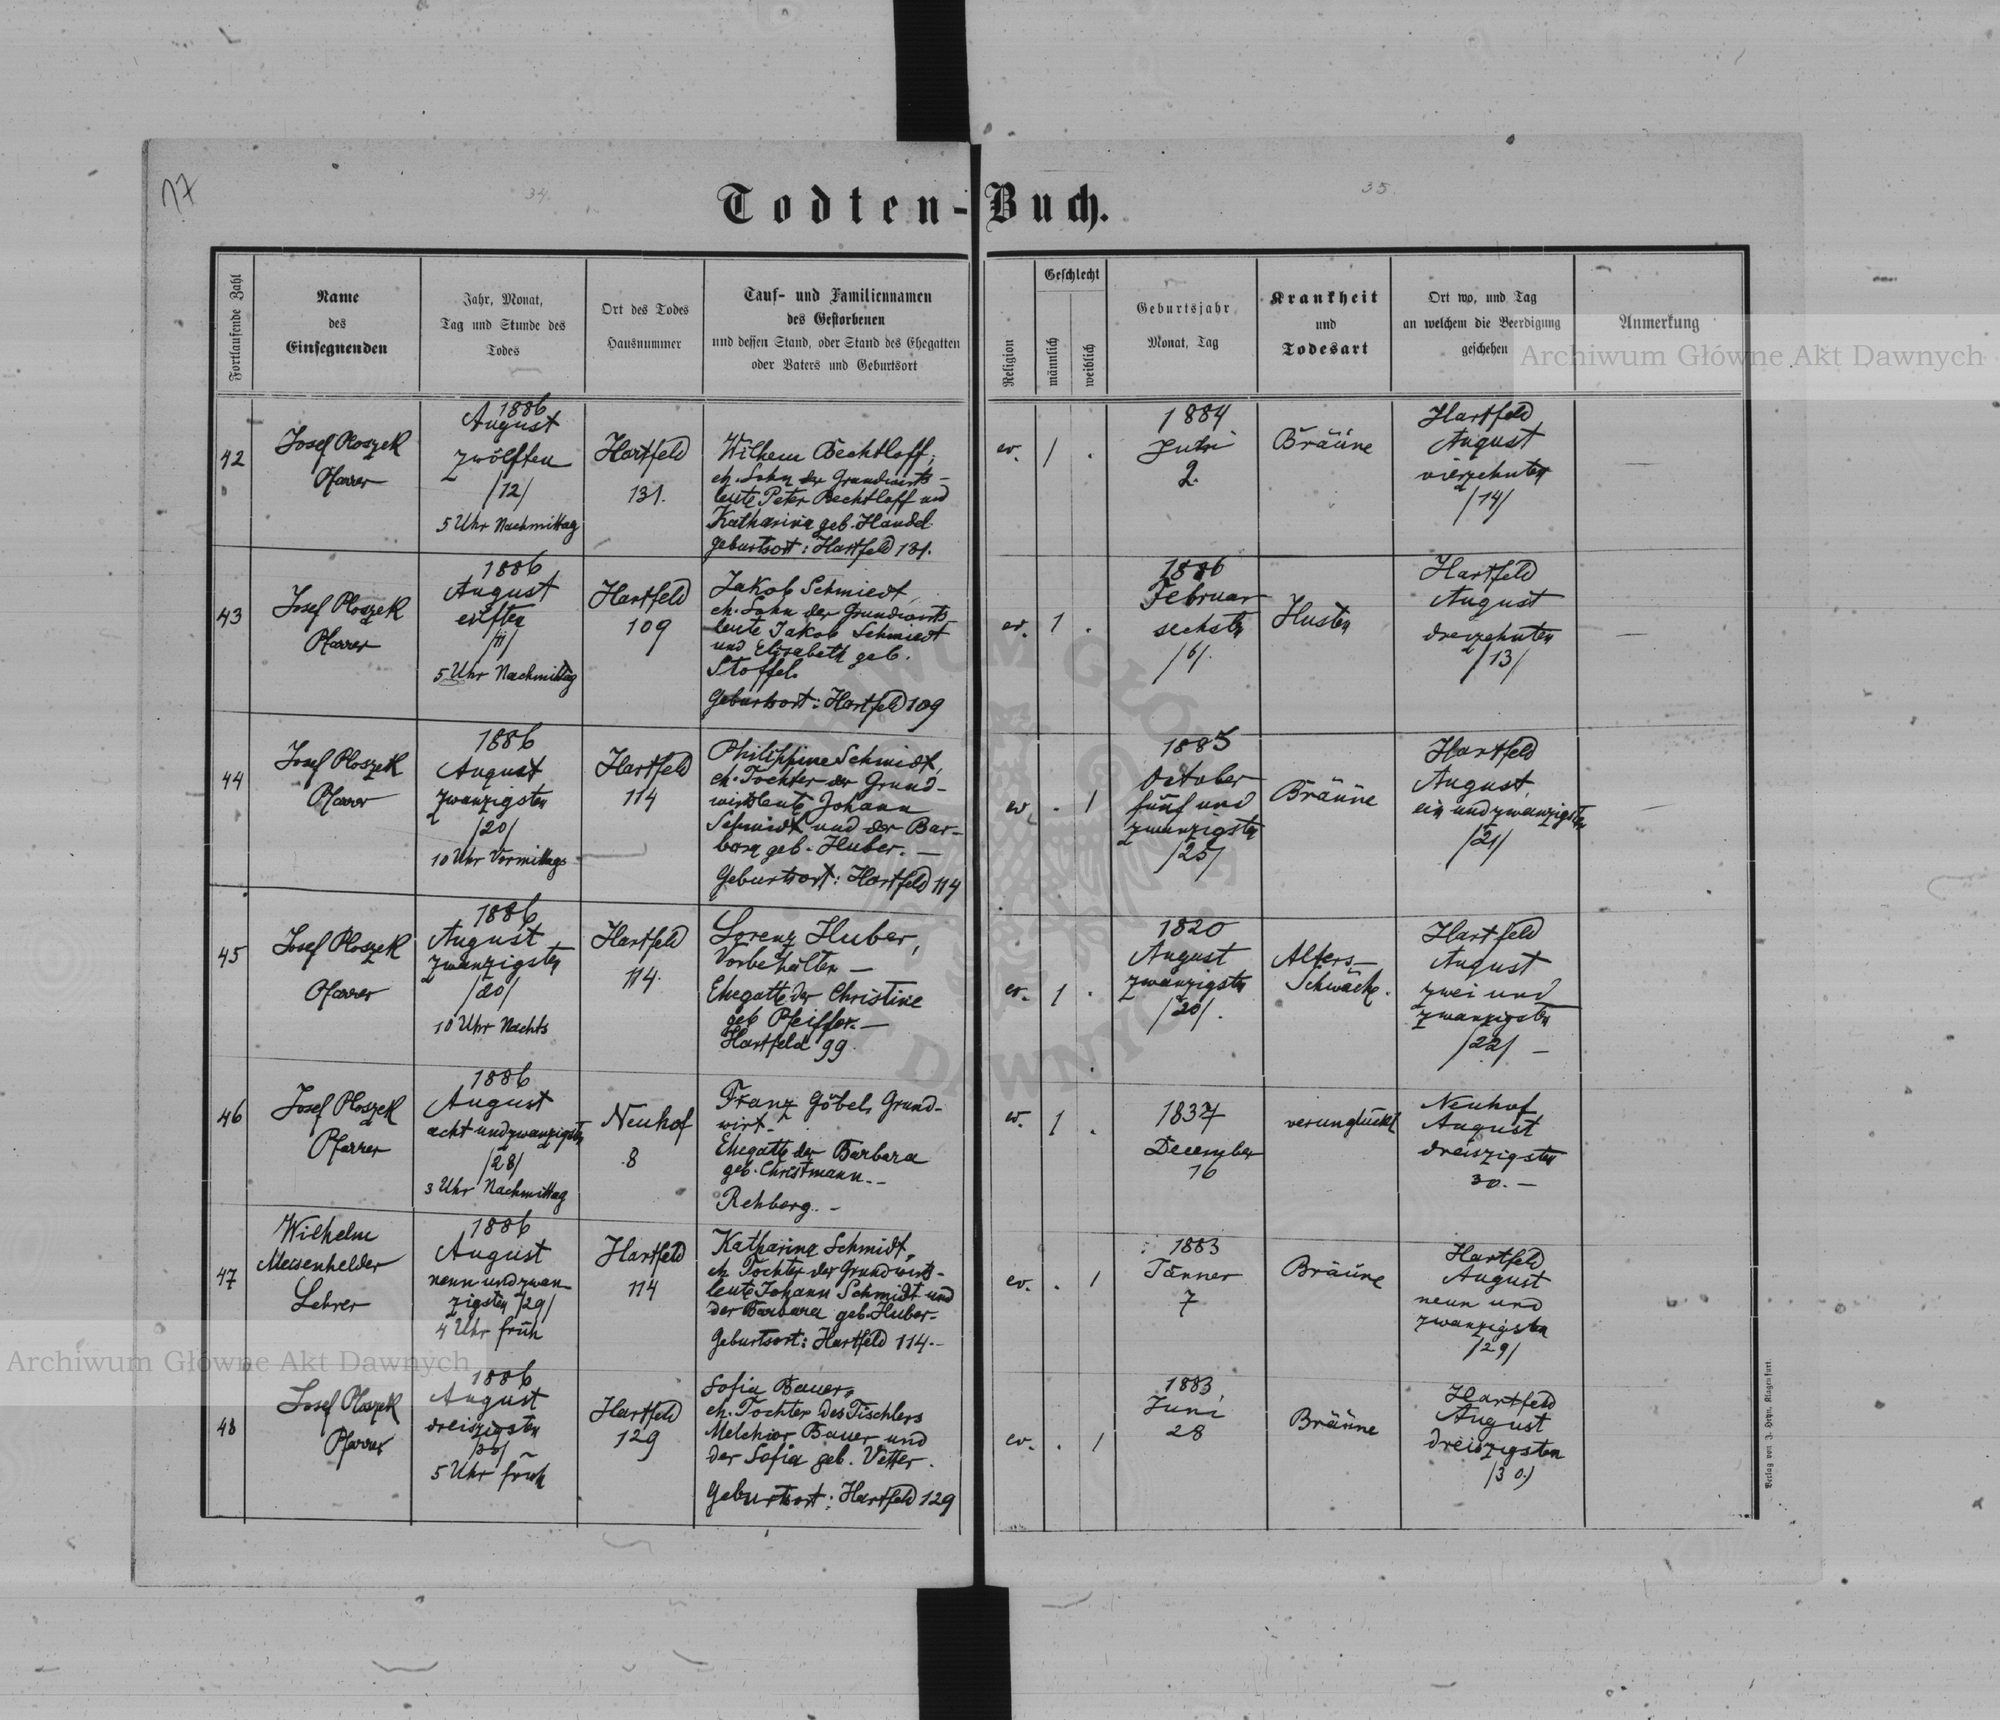 77
34.
35.
Todten-Buch.
Fortlaufende Zahl
Name
des
Einsegnenden
Jahr, Monat,
Tag und Stunde des
Todes
Ort des Todes
Hausnummer
Tauf- und Familiennamen
des Gestorbenen
und dessen Stand, oder Stand des Ehegatten
oder Vaters und Geburtsort
Religion
Geschlecht
männlich
weiblich
Geburtsjahr
Monat, Tag
Krankheit
und
Todesart
Ort wo, und Tag
an welchem die Beerdigung
geschehen
Anmerkung
Archiwum Główne Akt Dawnych
42
Josef Ploszek
Pfarrer
1886
August
zwölften
/12/
5 Uhr Nachmittag
Hartfeld
131.
Wilhem Bechtloff,
eh. Sohn der Grundwirts-
leute Peter Bechtloff und
Katharina geb. Handel.
Geburtsort: Hartfeld 131.
ev.
1
.
1884
Juli
2.
Bräüne
Hartfeld
August
vierzehnten
/14/
43
Josef Ploszek
Pfarrer
1886
August
eilften
/11/
5 Uhr Nachmittag
Hartfeld
109
Jakob Schmiedt,
eh. Sohn der Grundwirts-
leute Jakob Schmiedt
und Elisabeth geb.
Stoffel.
Geburtsort: Hartfeld 109
ev.
1
.
1886
Februar
sechsten
/6/.
Husten
Hartfeld
August
dreizehnten
/13/
44
Josef Ploszek
Pfarrer
1886
August
zwanzigsten
/20/
10 Uhr Vormittags
Hartfeld
114
Philippine Schmidt,
eh. Tochter der Grund-
wirtsleute Johann
Schmidt und der Bar-
bara geb. Huber. —
Geburtsort: Hartfeld 114
ev.
.
1
1885
October
fünf und
zwanzigsten
/25/
Bräüne
Hartfeld
August
ein und zwanzigsten
/21/
45
Josef Ploszek
Pfarrer
1886
August
zwanzigsten
/20/
10 Uhr Nachts
Hartfeld
114.
Lorenz Huber,
Vorbehälten —
Ehegatte der Christine
geb Pfeiffer. —
Hartfeld 99.
ev.
1
.
1820
August
zwanzigsten
/20/.
Alters-
Schwäche.
Hartfeld
August
zwei und
zwanzigsten
/22/ —
46
Josef Ploszek
Pfarrer
1886
August
acht und zwanzigsten
/28/
3 Uhr Nachmittag
Neuhof
8
Franz Göbel, Grund-
wirt. -
Ehegatte der Barbara
geb. Christmann. -
Rehberg. -
ev.
1
.
1837
December
16
verunglückt
Neuhof
August
dreiszigsten
30. —
47
Wilhelm
Meisenhelder
Lehrer
1886
August
neun und zwan-
zigsten /29/
4 Uhr früh
Hartfeld
114
Katharina Schmidt,
eh Tochter der Grundwirts-
leute Johann Schmidt und
der Barbara geb. Huber.
Geburtsort: Hartfeld 114. -
ev.
.
1
1883
Jänner
7
Bräüne
Hartfeld
August
neun und
zwanzigsten
/29/
48
Josef Ploszek
Pfarrer
1886
August
dreiszigsten
/30/
5 Uhr früh
Hartfeld
129
Sofia Bauer,
eh. Tochter des Tischlers
Melchior Bauer und
der Sofia geb. Vetter.
Geburtsort: Hartfeld 129
ev.
.
1
1883,
Juni
28
Bräüne
Hartfeld
August
dreiszigsten
/30/
Archiwum Główne Akt Dawnych
Verlag von J. Heyn, Klagenfurt.